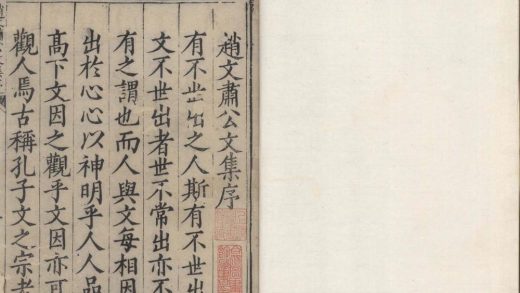 趙文肅公文集序
有不世出之人斯有不世出
文不世出者世不常出亦不
有之謂也而人與文每相因
出於心心以神明乎人人品
高下文因之觀乎文因亦可
觀人焉古稱孔子文之宗老